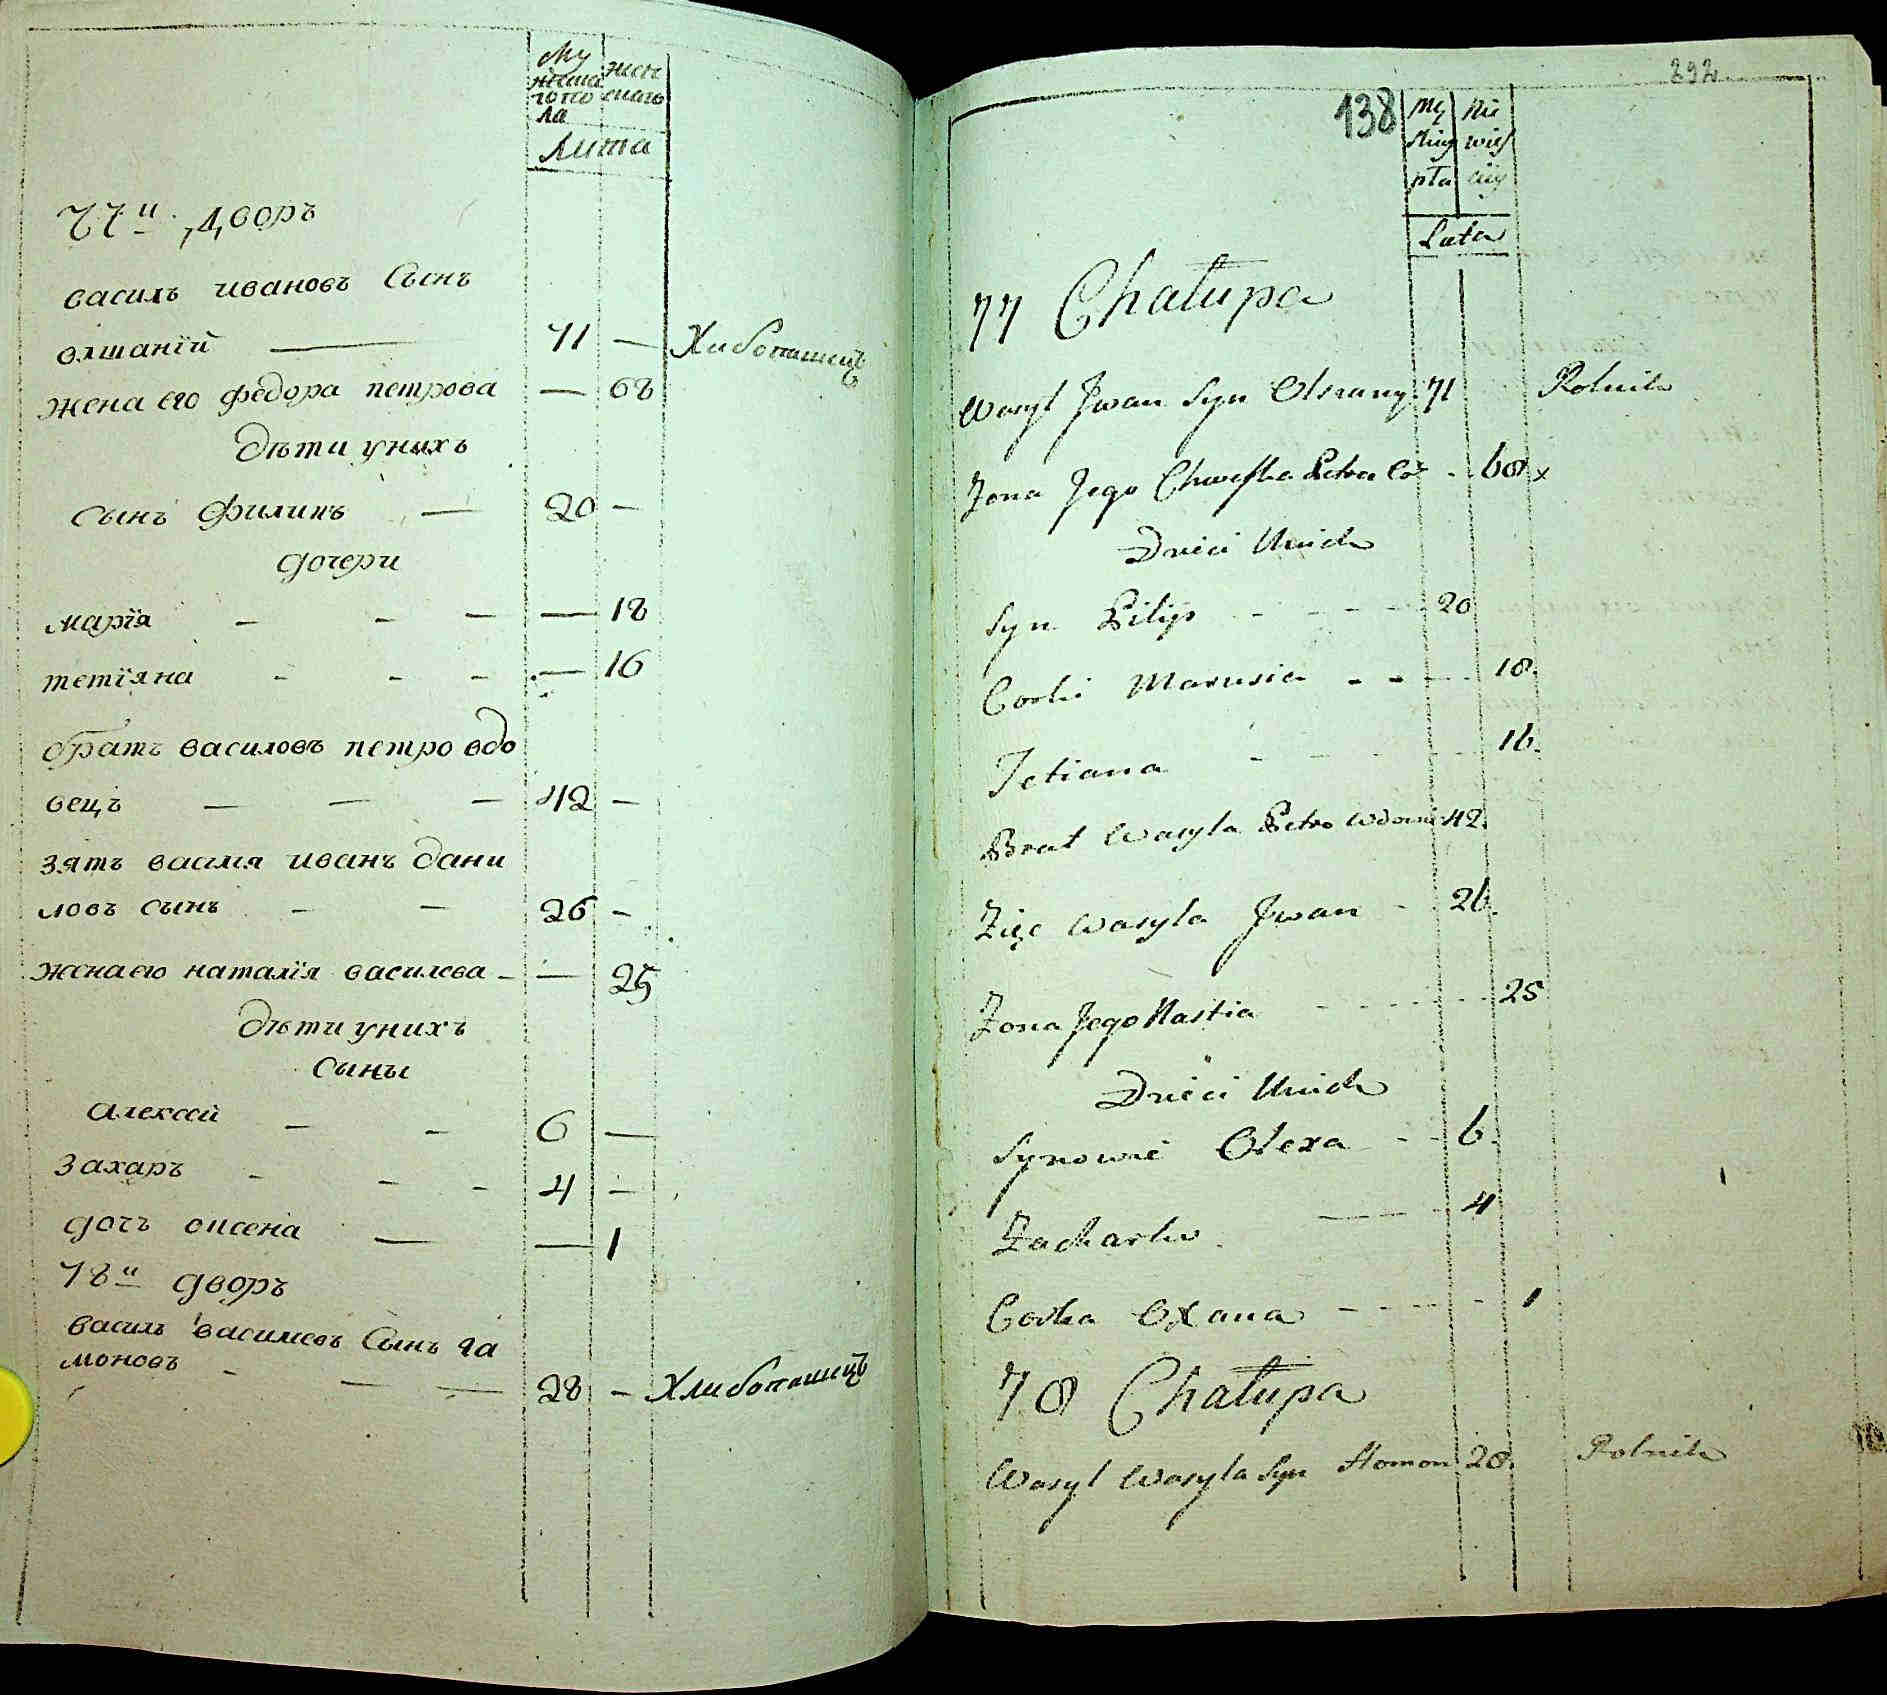 Му
жеска
го по
ла
женъ
скаго
Лита
77й дворъ
василъ ивановъ Сынъ
олшанїй — 71 — Хлибопашецъ
жена его федора петрова — 68
дѣти унихъ
сынъ Филипъ — 20 —
дочери
марїя - - - — 18
тетїяна - - - — 16
братъ василовъ петро вдо
вецъ — — — 42 —
зять василя иванъ дани
ловъ сынъ - — 26 -
жена его наталїя василева - — 25
дѣти унихъ
сыны
алексей - - 6 —
захаръ - - - 4 —
дочъ оксена — — 1
78й дворъ
василъ василиевъ Сынъ га
моновъ - — — 28 — Хлибопашецъ
292
138
Mę
skiey
płci
Nie
wieś
ciey
Lata
77 Chałupa
Wasyl Jwan Syn Olszany 71 Rolnik
Zona Jego Chweska Petra Cor - 68 x
Dzieci Unich
Syn Pilip - - - - 20
Corki Marusia - - - - 18.
Tetiana - - - - 16.
Brat Wasyla Petro Wdowiec 42.
Zięc Wasyla Jwan - 26.
Zona Jego Nastia - - - - 25
Dzieci Unich
Synowie Olexa - - 6.
Zacharko - - - 4
Corka Oxana - - - - 1
78 Chałupa
Wasyl Wasyla Syn Homon 28. Rolnik